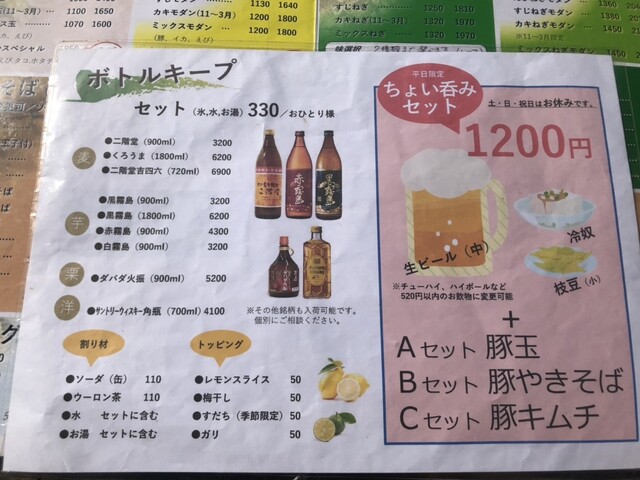 1130 1640
カキモダン(11〜3月) 1200 1800
ミックスモダン 1250 1800
(豚、イカ、えび)
1100 1650
1070 1600
すじねぎ 1250
カキねぎ(11〜3月) 1320
ミックスねぎ 1370
1360
カキねぎモダン 1450
※11〜3月限定
ミックスねぎモダン
ボトルキープ
セット(氷,水,お湯) 330/おひとり様
麦
●二階堂(900ml) 3200
●くろうま(1800ml) 6200
●二階堂吉四六(720ml) 6900
芋
●黒霧島(900ml) 3200
●黒霧島(1800ml) 6200
●赤霧島(900ml) 4300
●白霧島(900ml) 3200
栗
●ダバダ火振(900ml) 5200
洋
●サントリーウィスキー角瓶(700ml) 4100
※その他銘柄も入荷可能です。
個別にご相談ください。
割り材
●ソーダ(缶) 110
●ウーロン茶 110
●水 セットに含む
●お湯 セットに含む
トッピング
●レモンスライス 50
●梅干し 50
●すだち(季節限定) 50
●ガリ 50
平日限定
ちょい呑み
セット
土・日・祝日はお休みです。
1200円
生ビール(中)
冷奴
枝豆(小)
※チューハイ、ハイボールなど
520円以内のお飲物に変更可能
+
Aセット 豚玉
Bセット 豚やきそば
Cセット 豚キムチ